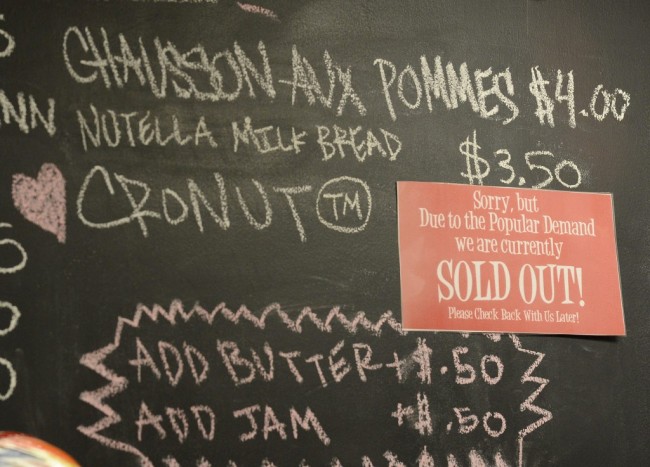 CHAUSSON AUX POMMES $4.00
NN
NUTELLA MILK BREAD $3.50
CRONUT TM
Sorry, but
Due to the Popular Demand
we are currently
SOLD OUT!
Please Check Back With Us Later!
ADD BUTTER +$.50
ADD JAM +$.50